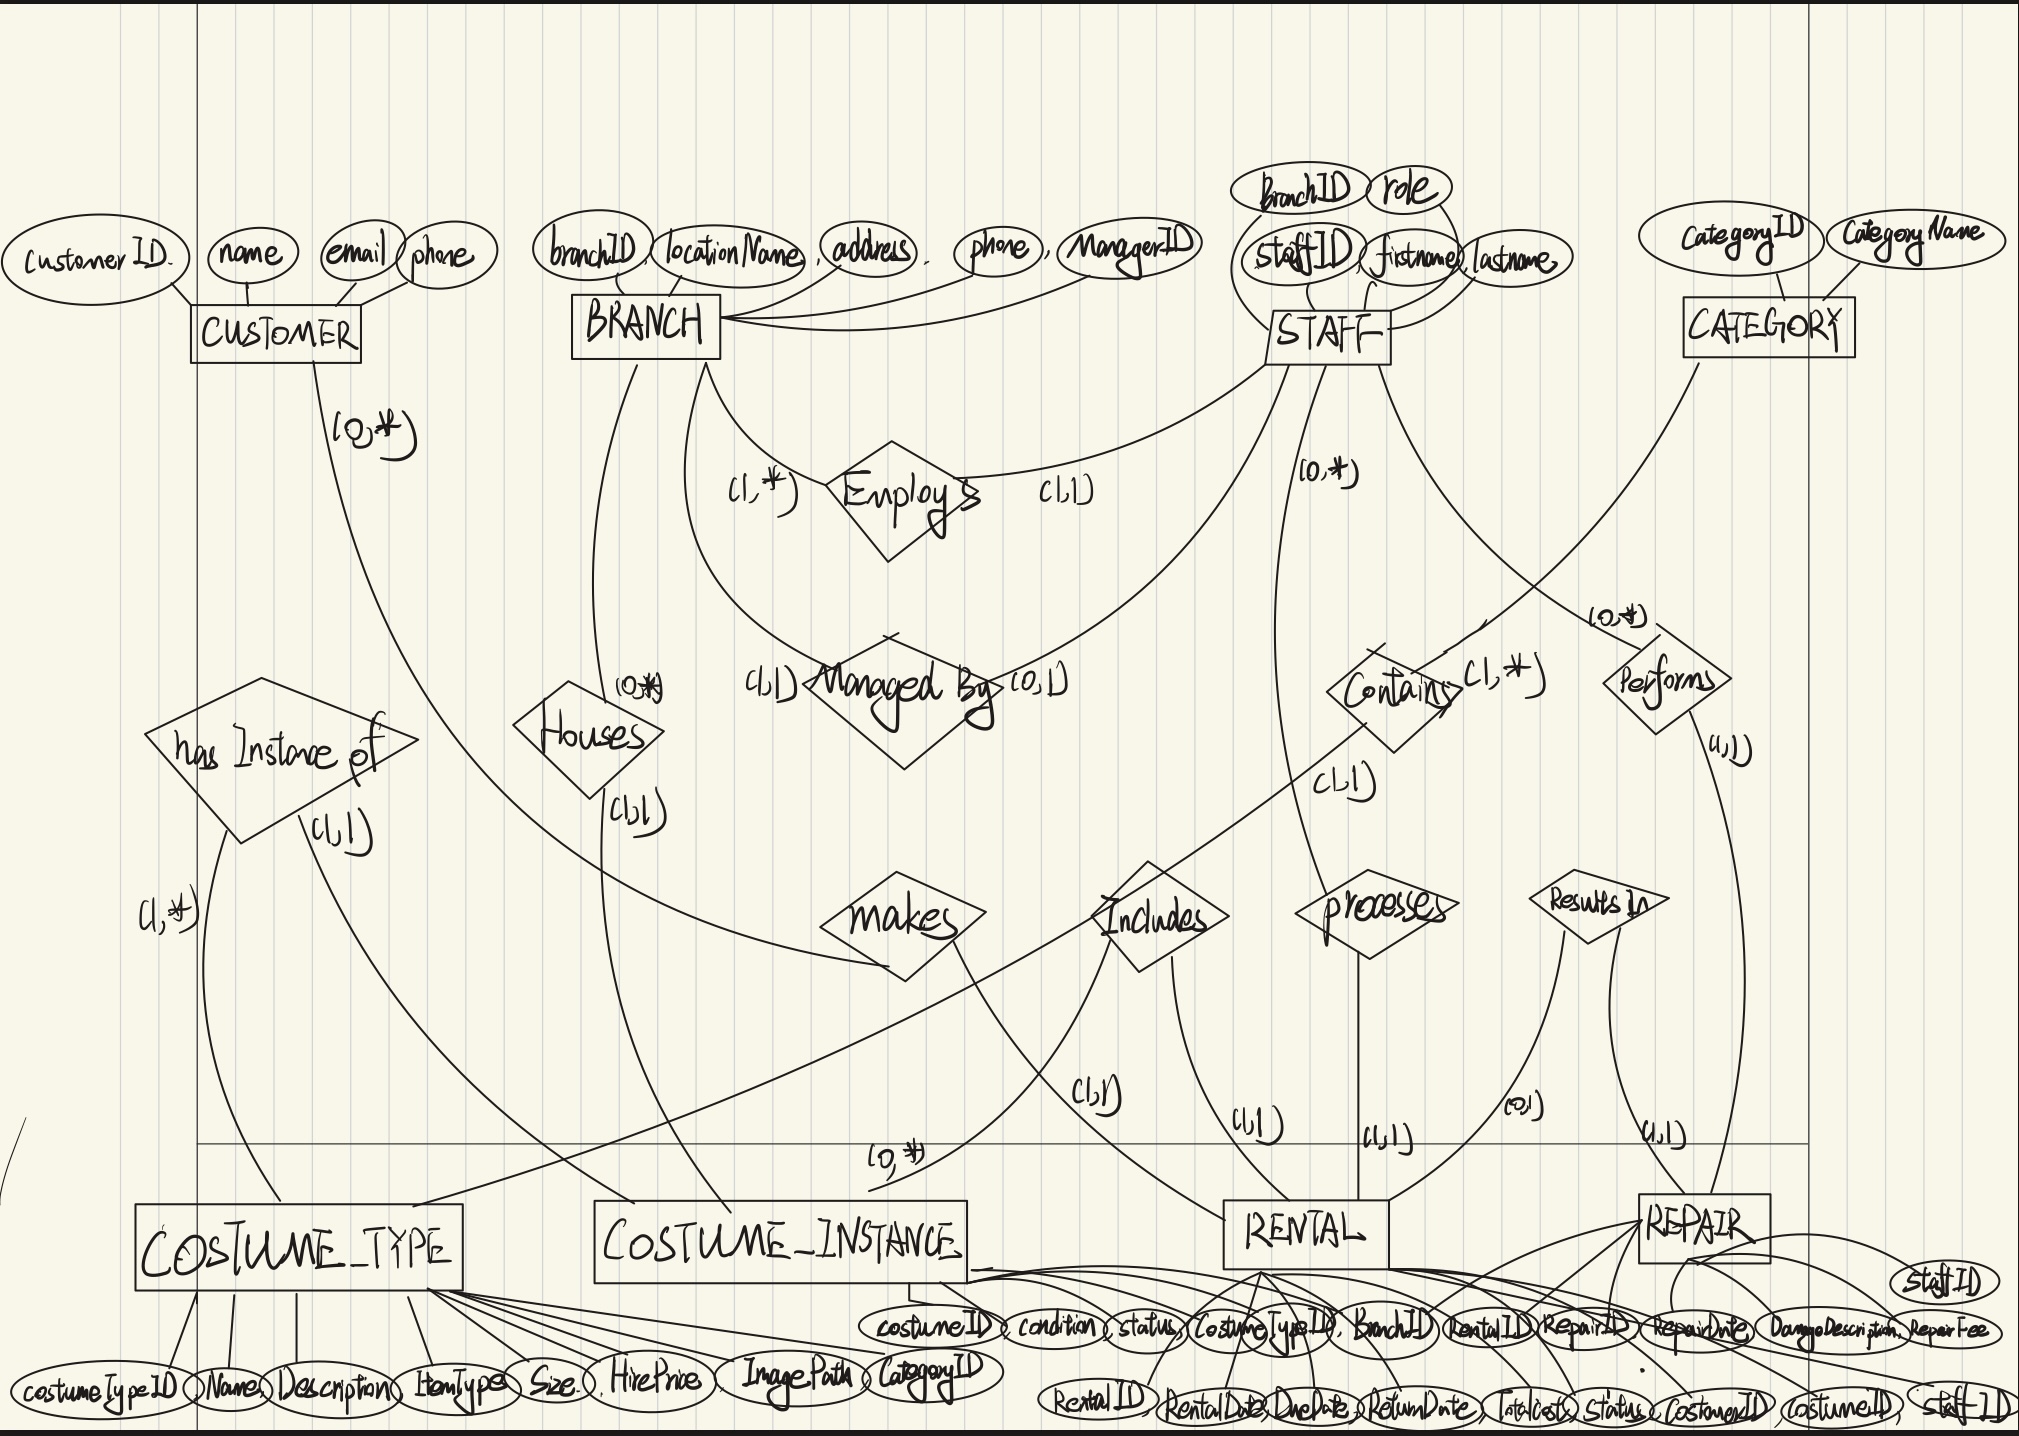 BranchID role
customer ID name email phone branchID, locationName, address, phone, ManagerID staffID, firstname, lastname CategoryID Category Name
CUSTOMER BRANCH STAFF CATEGORY
(0,*)
(1,*) Employs (1,1) (0,*)
(0,*)
(0,*) (1,1) Managed By (0,1) Contains (1,*) Performs
has Instance of Houses (1,1)
(1,1) (1,1) (1,1)
(1,*) makes Includes processes Results In
(1,1) (1,1) (1,1) (0,1) (1,1)
(0,*)
COSTUME_TYPE COSTUME_INSTANCE RENTAL REPAIR
staffID
costumeID, condition, status, CostumeTypeID, BranchID RentalID, RepairID, RepairDate, DamageDescription, RepairFee
costumeTypeID, Name, Description, ItemType, Size, HirePrice, ImagePath, CategoryID
RentalID, RentalDate, DueDate, ReturnDate, TotalCost, Status, CostomerID, CostumeID, staffID